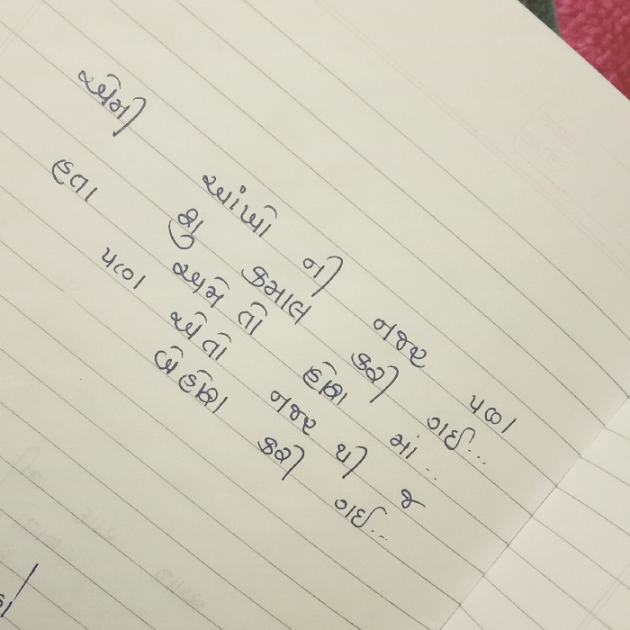 એની આંખો ની નજર પણ
શુ કમાલ કરી ગઈ...
હતા અમે તો હોશ માં..
પણ એતો નજર થી જ
બેહોશ કરી ગઈ...